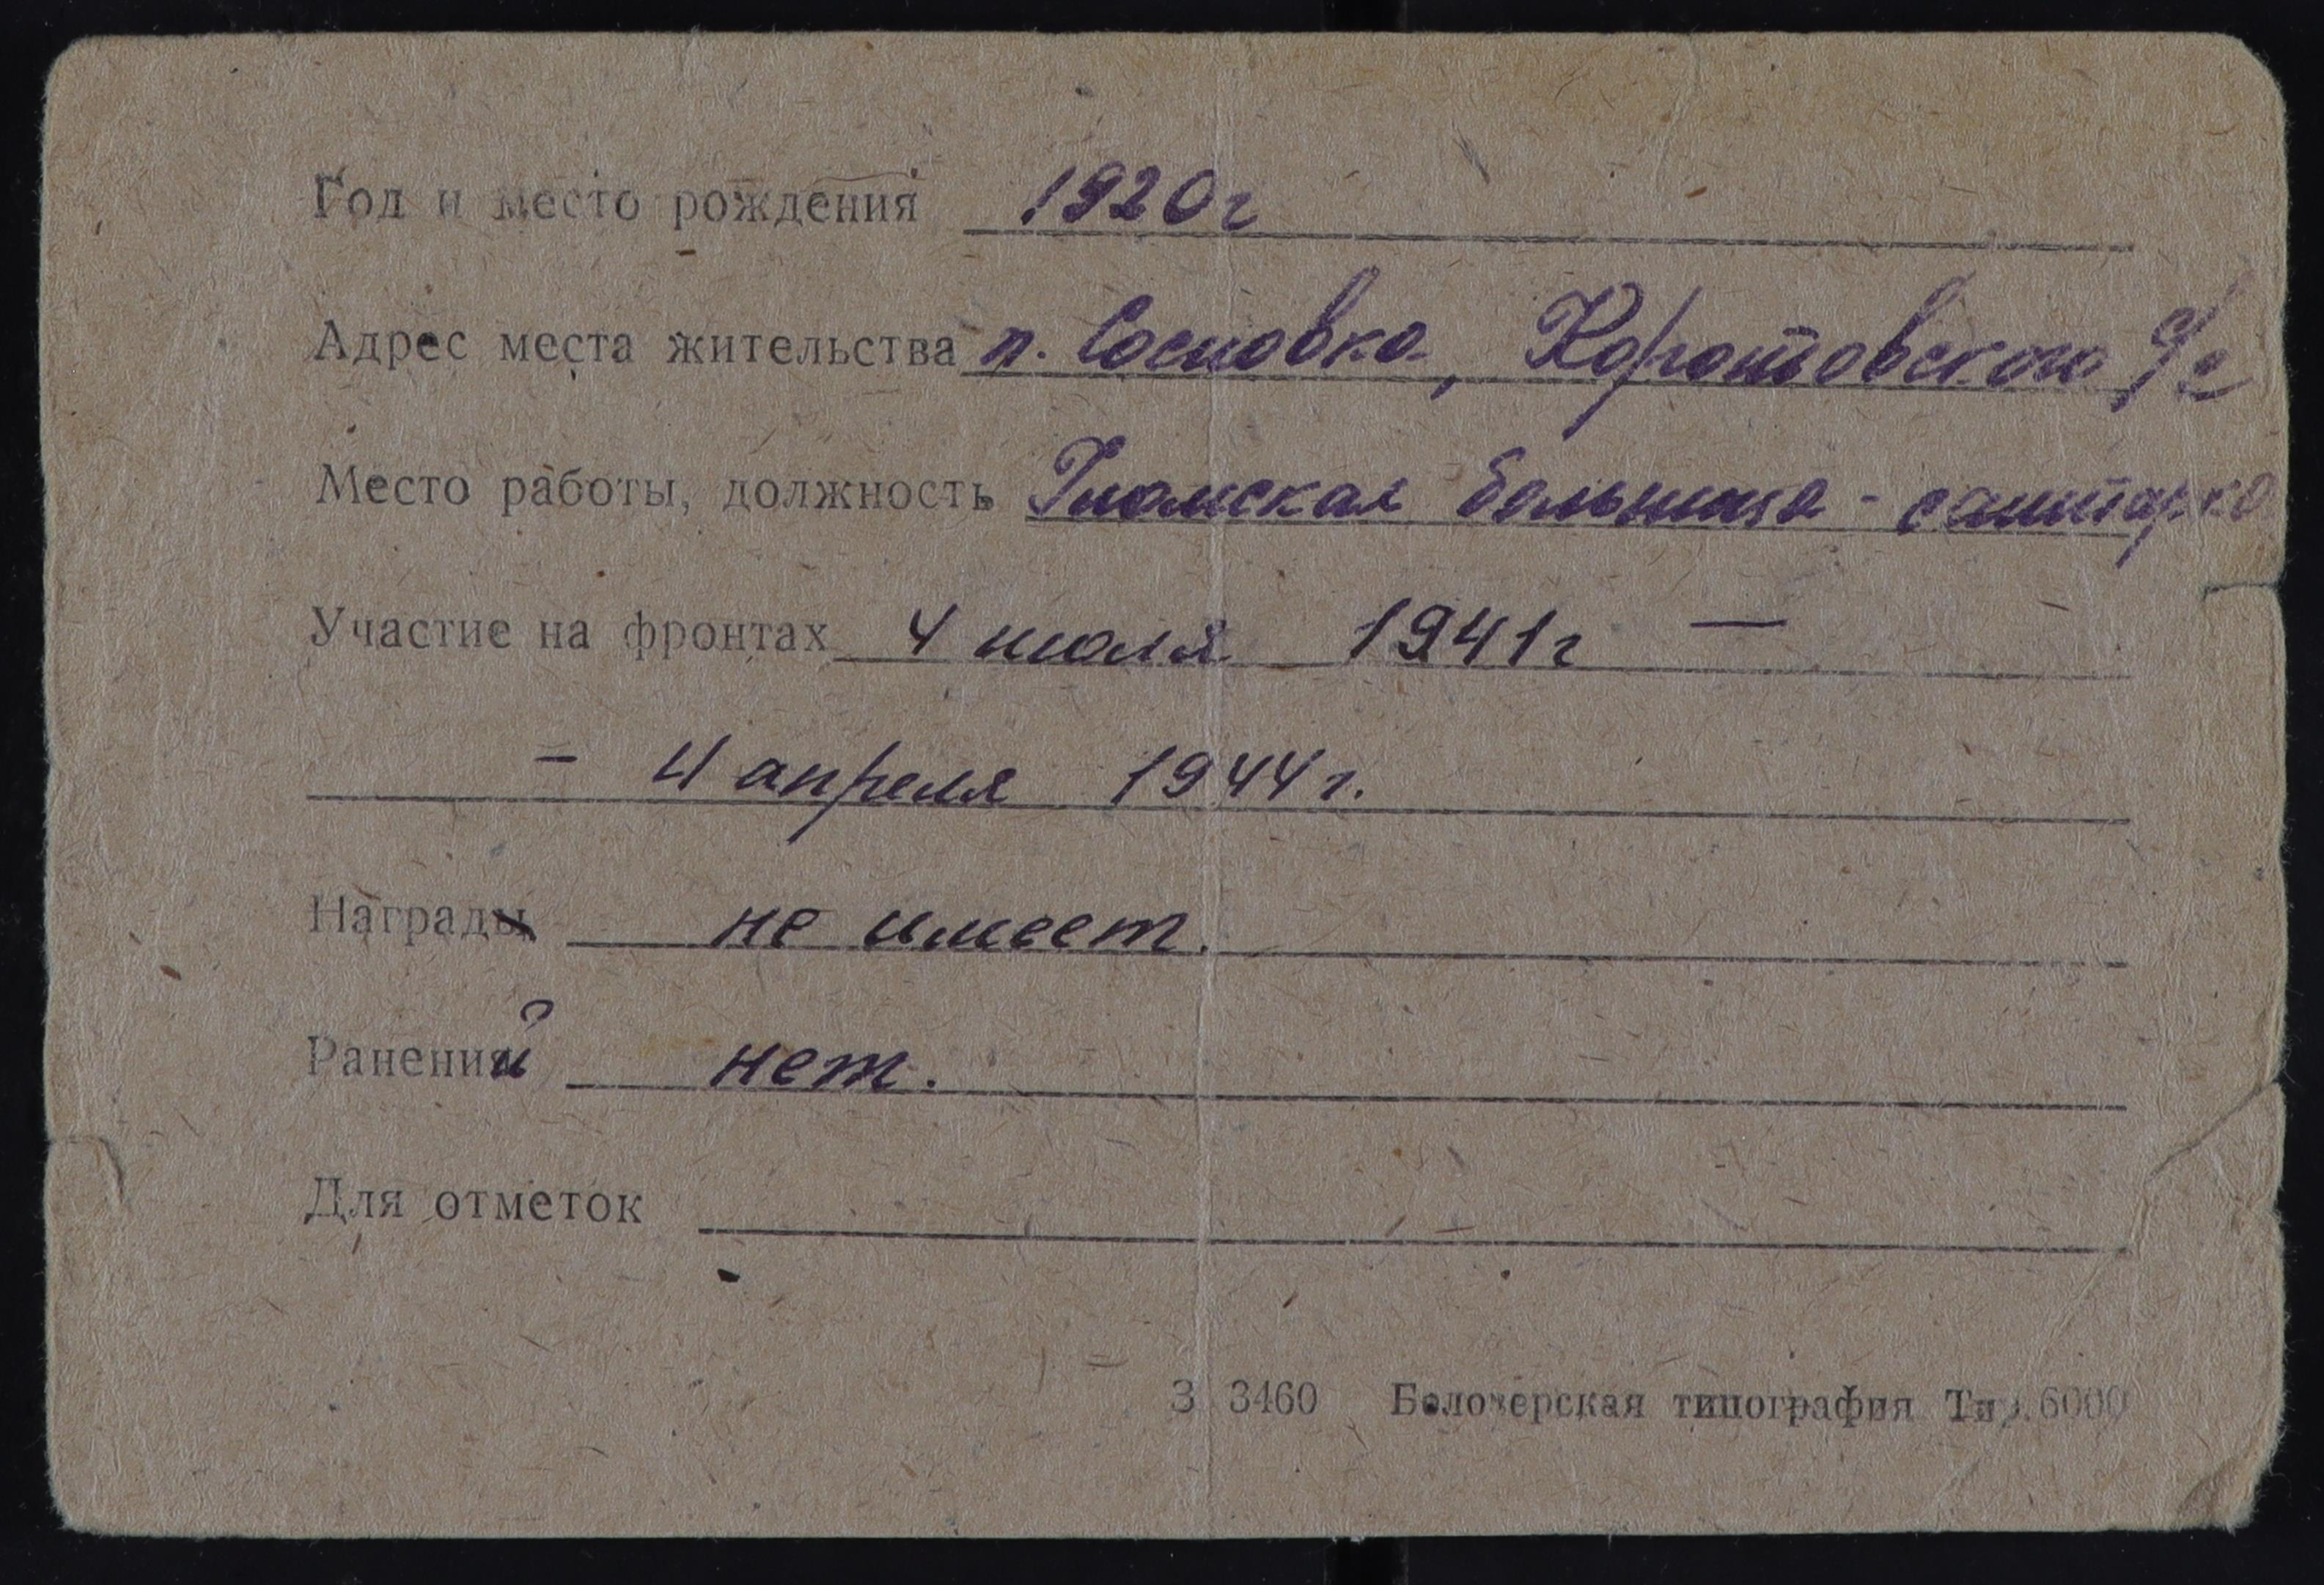 Год и место рождения 1920г
Адрес места жительства п. Сосновка, Коротовского с/с
Место работы, должность больница - санитарка
Участие на фронтах 4 июля 1941г —
- 4 апреля 1944г.
Награды не имеет.
Ранений нет.
Для отметок
З 3460 Белозерская типография Тир. 6000